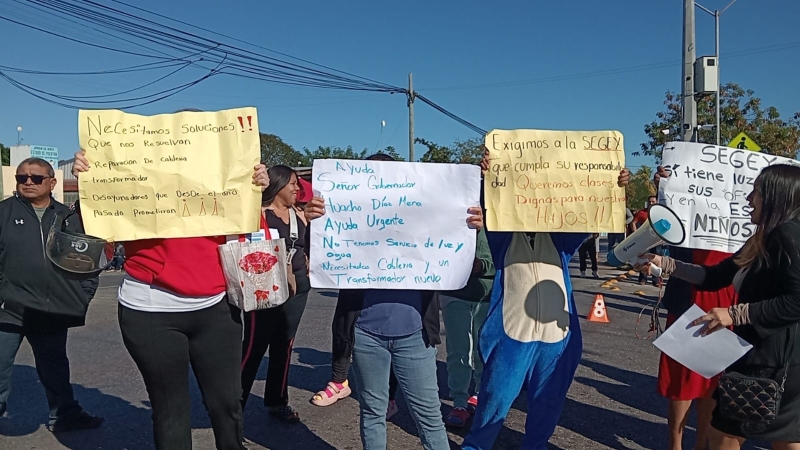 NeCesitamos Soluciones!!
Que nos Resuelvan
Reparación De cableria
-transformador
- Desayunadores que DesDe el año
Pasado Prometieron ¡¡¡
Ayuda
Señor Gobernador
Huacho Díaz Mena
Ayuda Urgente
No Tenemos Servicio de luz y
agua
Necesitados Cableria y un
Transformador nuevo
Exigimos a la SEGEY
que cumpla su responsabili
dad Queremos clases
Dignas para nuestros
HIJOS!!
SEGEY
SÍ tiene luz
SUS OF
Y en la ES
NIÑOS
8